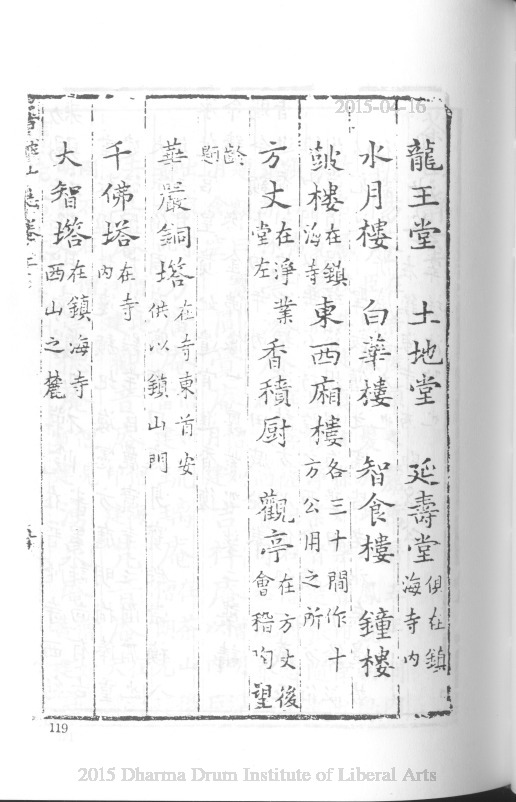 龍王堂 土地堂 延壽堂 俱在鎮海寺内
水月樓 白華樓 智食樓 鐘樓
皷樓 在鎮海寺 東西廂樓 各三十間作十方公用之所
方丈 在淨業堂左 香積厨 觀亭 在方丈後會稽望
齡題
華嚴銅塔 在寺東首安供以鎮山門
千佛塔 在寺内
大智塔 在鎮海寺西山之麓
119
2015-04-16
2015 Dharma Drum Institute of Liberal Arts